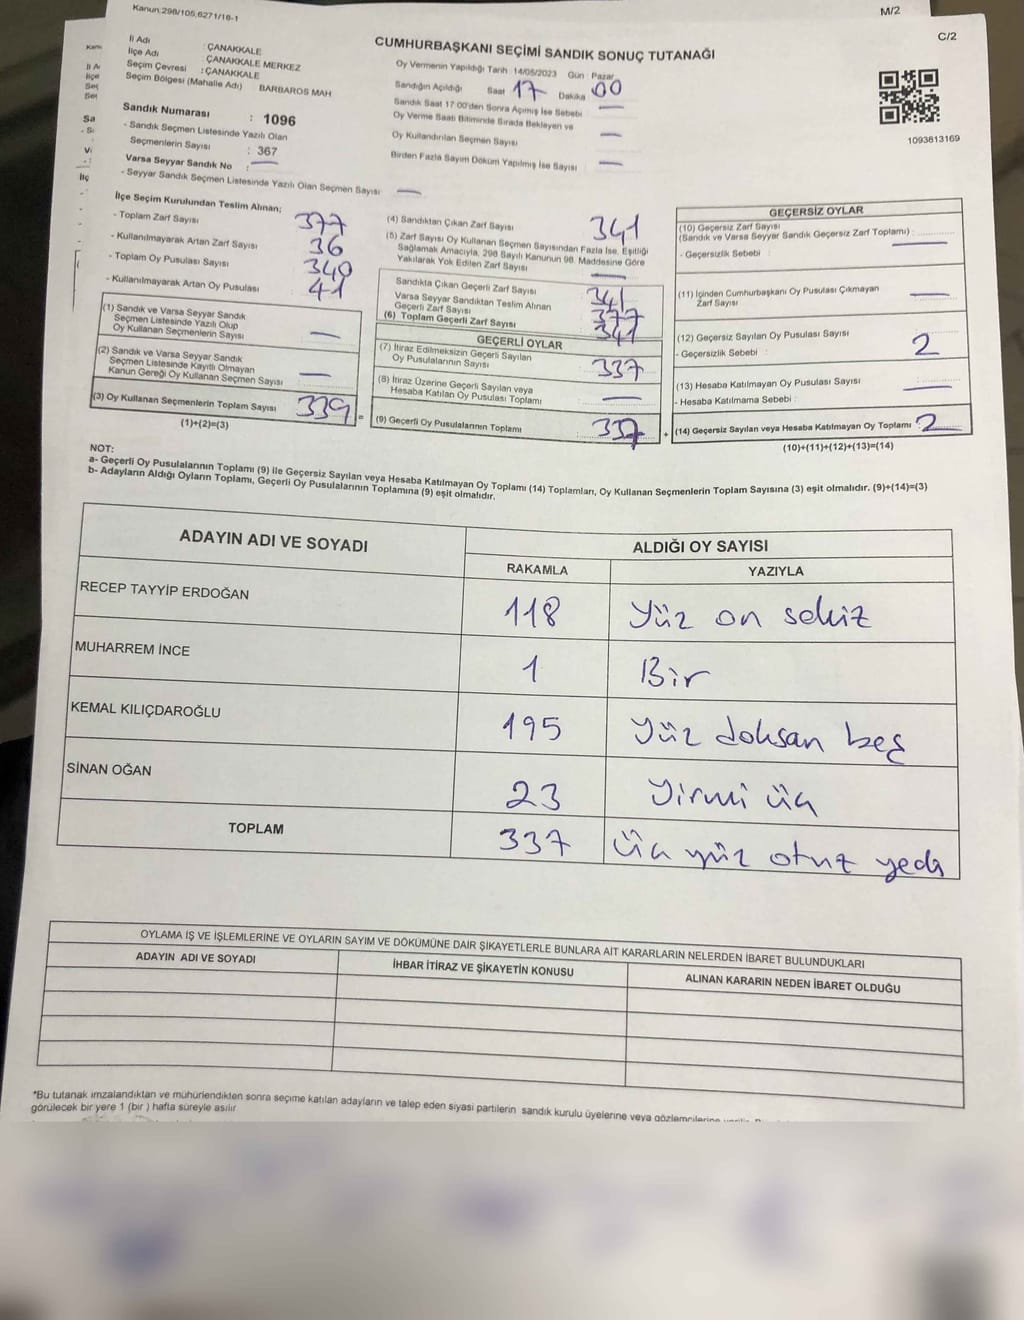 Kanun:298/105,6271/16-1
M/2
C/2
CUMHURBAŞKANI SEÇİMİ SANDIK SONUÇ TUTANAĞI
İl Adı : ÇANAKKALE
İlçe Adı : ÇANAKKALE MERKEZ
Seçim Çevresi : ÇANAKKALE
Seçim Bölgesi (Mahalle Adı) BARBAROS MAH
Oy Vermenin Yapıldığı Tarih : 14/05/2023 Gün : Pazar
Sandığın Açıldığı Saat 17 Dakika 00
Sandık Saat 17:00'den Sonra Açılmış İse Sebebi —
Oy Verme Saati Bitiminde Sırada Bekleyen ve
Oy Kullandırılan Seçmen Sayısı —
Birden Fazla Sayım Döküm Yapılmış İse Sayısı —
1093813169
Sandık Numarası : 1096
- Sandık Seçmen Listesinde Yazılı Olan
Seçmenlerin Sayısı : 367
Varsa Seyyar Sandık No : —
- Seyyar Sandık Seçmen Listesinde Yazılı Olan Seçmen Sayısı —
İlçe Seçim Kurulundan Teslim Alınan;
- Toplam Zarf Sayısı 377
- Kullanılmayarak Artan Zarf Sayısı 36
- Toplam Oy Pusulası Sayısı
- Kullanılmayarak Artan Oy Pusulası 41
(1) Sandık ve Varsa Seyyar Sandık
Seçmen Listesinde Yazılı Olup
Oy Kullanan Seçmenlerin Sayısı —
(2) Sandık ve Varsa Seyyar Sandık
Seçmen Listesinde Kayıtlı Olmayan
Kanun Gereği Oy Kullanan Seçmen Sayısı —
(3) Oy Kullanan Seçmenlerin Toplam Sayısı 339 =
(1)+(2)=(3)
(4) Sandıktan Çıkan Zarf Sayısı 341
(5) Zarf Sayısı Oy Kullanan Seçmen Sayısından Fazla İse, Eşitliği
Sağlamak Amacıyla, 298 Sayılı Kanunun 98. Maddesine Göre
Yakılarak Yok Edilen Zarf Sayısı —
Sandıkta Çıkan Geçerli Zarf Sayısı 341
Varsa Seyyar Sandıktan Teslim Alınan
Geçerli Zarf Sayısı 377
(6) Toplam Geçerli Zarf Sayısı 341
GEÇERLİ OYLAR
(7) İtiraz Edilmeksizin Geçerli Sayılan
Oy Pusulalarının Sayısı 337
(8) İtiraz Üzerine Geçerli Sayılan veya
Hesaba Katılan Oy Pusulası Toplamı —
(9) Geçerli Oy Pusulalarının Toplamı 337 +
GEÇERSİZ OYLAR
(10) Geçersiz Zarf Sayısı
(Sandık ve Varsa Seyyar Sandık Geçersiz Zarf Toplamı) : —
- Geçersizlik Sebebi :
(11) İçinden Cumhurbaşkanı Oy Pusulası Çıkmayan
Zarf Sayısı —
(12) Geçersiz Sayılan Oy Pusulası Sayısı 2
- Geçersizlik Sebebi :
(13) Hesaba Katılmayan Oy Pusulası Sayısı —
- Hesaba Katılmama Sebebi :
(14) Geçersiz Sayılan veya Hesaba Katılmayan Oy Toplamı 2
(10)+(11)+(12)+(13)=(14)
NOT:
a- Geçerli Oy Pusulalarının Toplamı (9) ile Geçersiz Sayılan veya Hesaba Katılmayan Oy Toplamı (14) Toplamları, Oy Kullanan Seçmenlerin Toplam Sayısına (3) eşit olmalıdır. (9)+(14)=(3)
b- Adayların Aldığı Oyların Toplamı, Geçerli Oy Pusulalarının Toplamına (9) eşit olmalıdır.
ADAYIN ADI VE SOYADI ALDIĞI OY SAYISI
RAKAMLA YAZIYLA
RECEP TAYYİP ERDOĞAN 118 Yüz on sekiz
MUHARREM İNCE 1 Bir
KEMAL KILIÇDAROĞLU 195 Yüz doksan beş
SİNAN OĞAN 23 Yirmi üç
TOPLAM 337 Üç yüz otuz yedi
OYLAMA İŞ VE İŞLEMLERİNE VE OYLARIN SAYIM VE DÖKÜMÜNE DAİR ŞİKAYETLERLE BUNLARA AİT KARARLARIN NELERDEN İBARET BULUNDUKLARI
ADAYIN ADI VE SOYADI İHBAR İTİRAZ VE ŞİKAYETİN KONUSU ALINAN KARARIN NEDEN İBARET OLDUĞU
*Bu tutanak imzalandıktan ve mühürlendikten sonra seçime katılan adayların ve talep eden siyasi partilerin sandık kurulu üyelerine veya gözlemcilerine
görülecek bir yere 1 (bir ) hafta süreyle asılır.